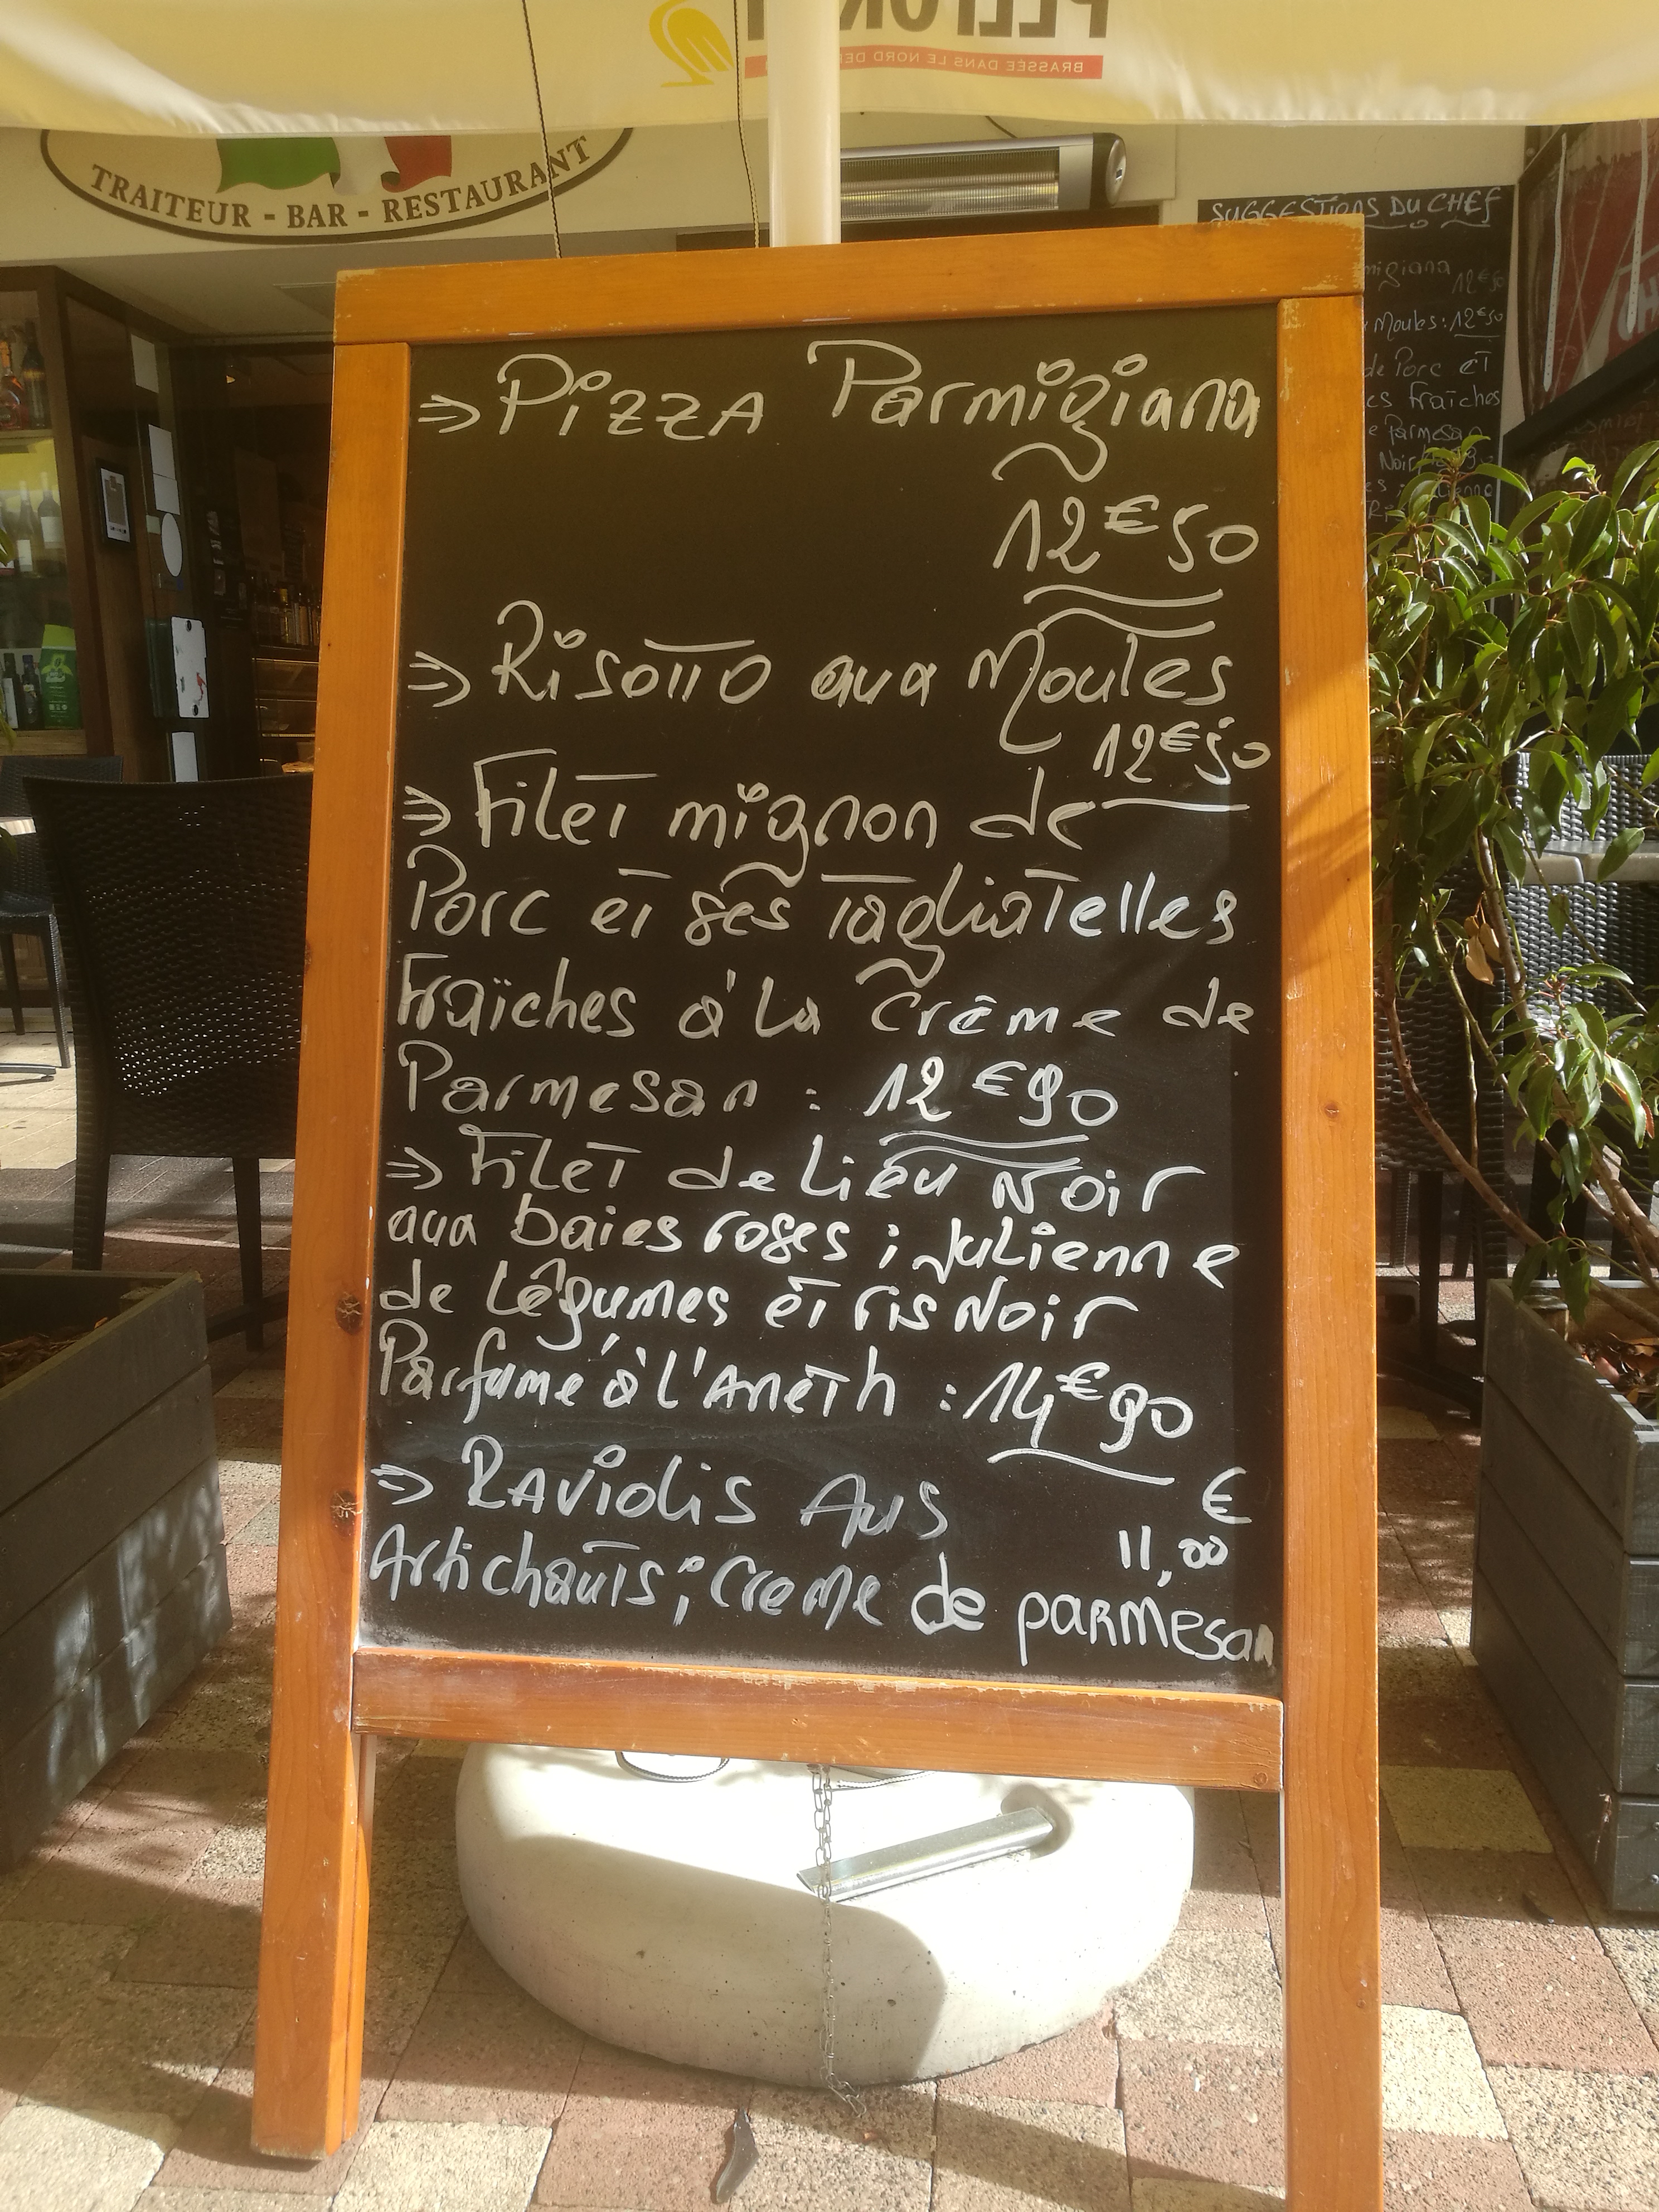 BRASSÉE DANS LE NORD DE
TRAITEUR - BAR - RESTAURANT
SUGGESTIONS DU CHEF
migiana 12€50
Moules : 12€50
de Porc et
es Fraîches
e Parmesan
Noir
⇒ Pizza Parmigiana
12€50
⇒ Risotto aux Moules
12€50
⇒ Filet mignon de
Porc et ses Tagliatelles
Fraîches à la Crème de
Parmesan : 12€90
⇒ Filet de Lieu Noir
aux baies roses ; Julienne
de Légumes et ris Noir
Parfumé à l'Aneth : 14€90
⇒ Raviolis Aus
€
11,00
Artichauts ; Creme de parmesan